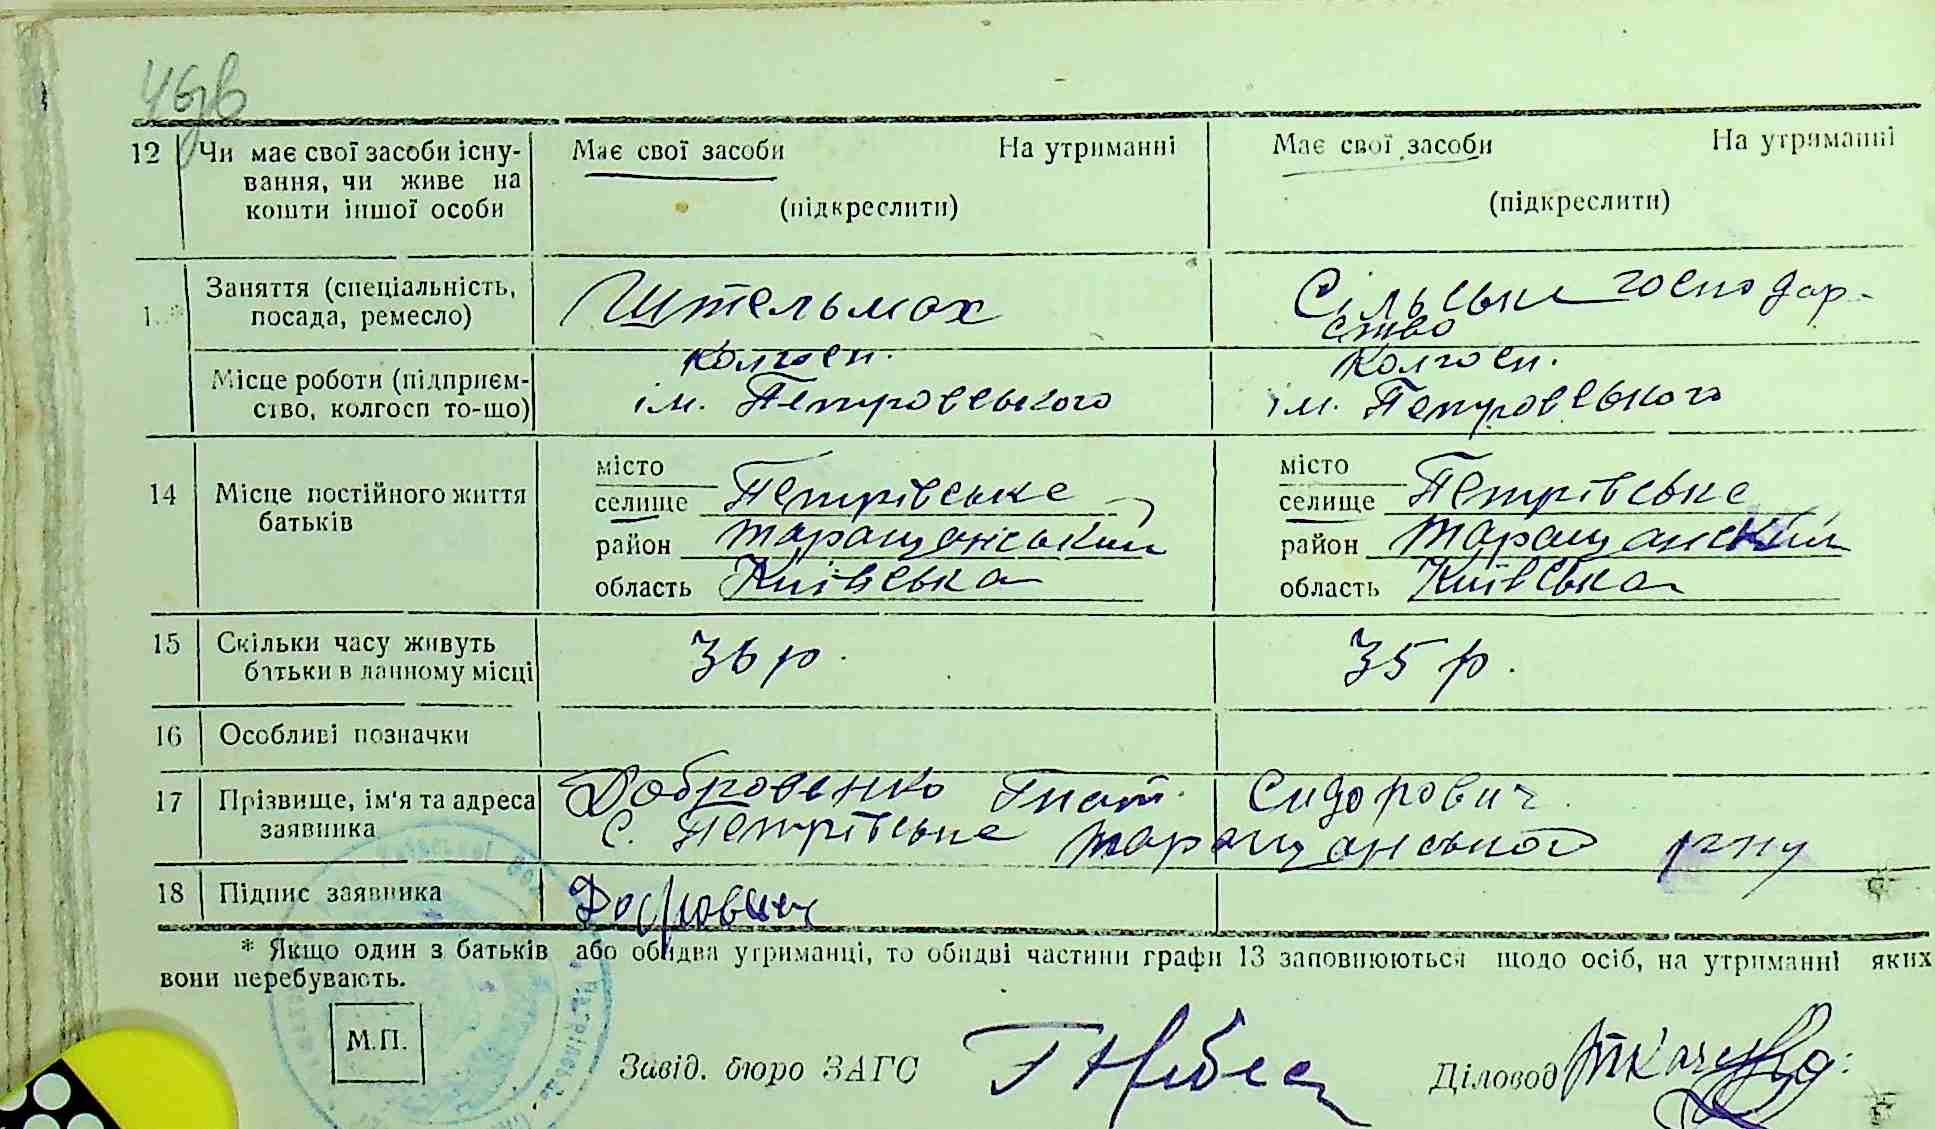 46зв
12 Чи має свої засоби існу- Має свої засоби На утриманні Має свої засоби На утриманні
вання, чи живе на
кошти іншої особи (підкреслити) (підкреслити)
Заняття (спеціальність, Штельмах Сільське господар-
1 * посада, ремесло) ство
Колгосп. Колгосп.
Місце роботи (підприєм- ім. Петровського ім. Петровського
ство, колгосп то-що)
14 Місце постійного життя місто місто
батьків селище Петрівське селище Петрівське
район Таращанський район Таращанский
область Київська область Київська
15 Скільки часу живуть 36 р. 35 р.
батьки в данному місці
16 Особливі позначки
17 Прізвище, ім'я та адреса Добровенко Гнат Сидорович
заявника с. Петрівське Таращанського рну
18 Підпис заявника
* Якщо один з батьків або обидва утриманці, то обидві частини графи 13 заповнюються щодо осіб, на утриманні яких
вони перебувають.
М.П.
Завід. бюро ЗАГС Діловод